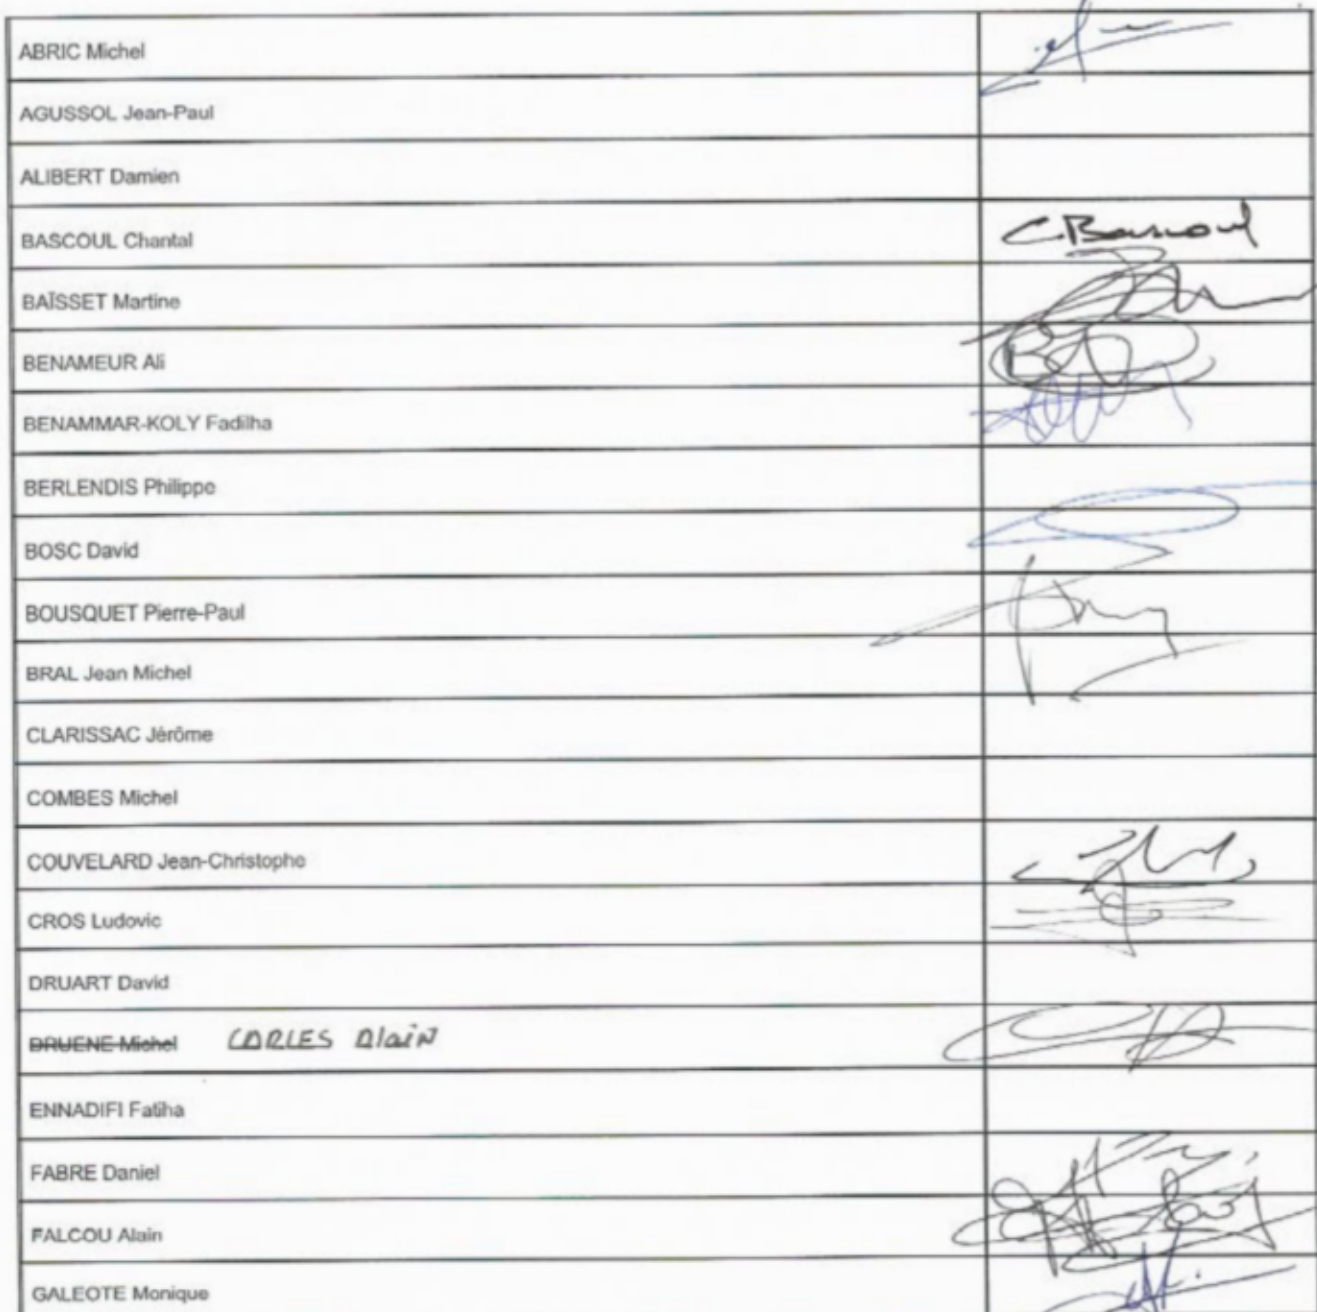 ABRIC Michel
AGUSSOL Jean-Paul
ALIBERT Damien
BASCOUL Chantal C. Bascoul
BAÏSSET Martine
BENAMEUR Ali
BENAMMAR-KOLY Fadilha
BERLENDIS Philippe
BOSC David
BOUSQUET Pierre-Paul
BRAL Jean Michel
CLARISSAC Jérôme
COMBES Michel
COUVELARD Jean-Christophe
CROS Ludovic
DRUART David
DRUENE Michel CARLES Alain
ENNADIFI Fatiha
FABRE Daniel
FALCOU Alain
GALEOTE Monique